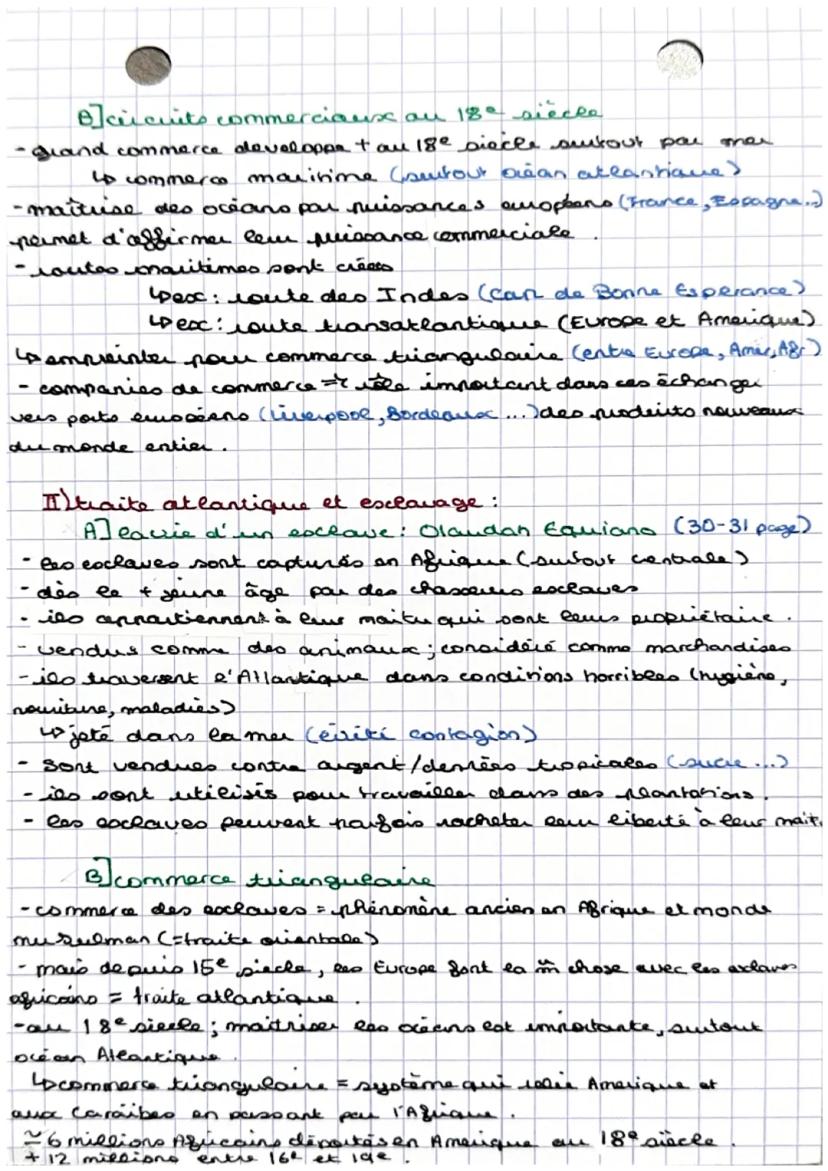 B] circuits commerciaux au 18e siècle
- grand commerce developpe + au 18e siècle surtout par mer
↳ commerce maritime (surtout océan atlantique)
- maîtrise des océans par puissances européens (France, Espagne...)
permet d'affirmer leur puissance commerciale.
- routes maritimes sont créés
↳ ex: route des Indes (Cap de Bonne Esperance)
↳ ex: route transatlantique (Europe et Amerique)
↳ empreinter pour commerce triangulaire (entre Europe, Amer, Afr)
- companies de commerce ⇒ rôle important dans ces échanges
vers ports européens (Liverpool, Bordeaux ...) des produits nouveaux
du monde entier.
II) traite atlantique et esclavage :
A] la vie d'un esclave : Olaudah Equiano (30-31 page)
- les esclaves sont capturés en Afrique (surtout centrale)
- dès le + jeune âge par des chasseurs esclaves
- ils appartiennent à leur maitre qui sont leurs propriétaire.
- vendus comme des animaux ; considéré comme marchandises
- ils traversent l'Atlantique dans conditions horribles (hygiène,
nourriture, maladies)
↳ jeté dans la mer (évité contagion)
- sont vendues contre argent/denrées tropicales (sucre ...)
- ils sont utilisés pour travailler dans des plantations.
- les esclaves peuvent parfois racheter leur liberté à leur mait.
B] commerce triangulaire
- commerce des esclaves = phénomène ancien en Afrique et monde
musulman (= traite orientale)
- mais depuis 15e siecle, les Europe font la m̂ chose avec les esclaves
africains = traite atlantique.
- au 18e siecle ; maitriser les océans est importante, surtout
océan Atlantique.
↳ commerce triangulaire = système qui relie Amerique et
aux Caraïbes en passant par l'Afrique.
≃ 6 millions Africains déportés en Amerique au 18e siècle.
+ 12 millions entre 16e et 19e.